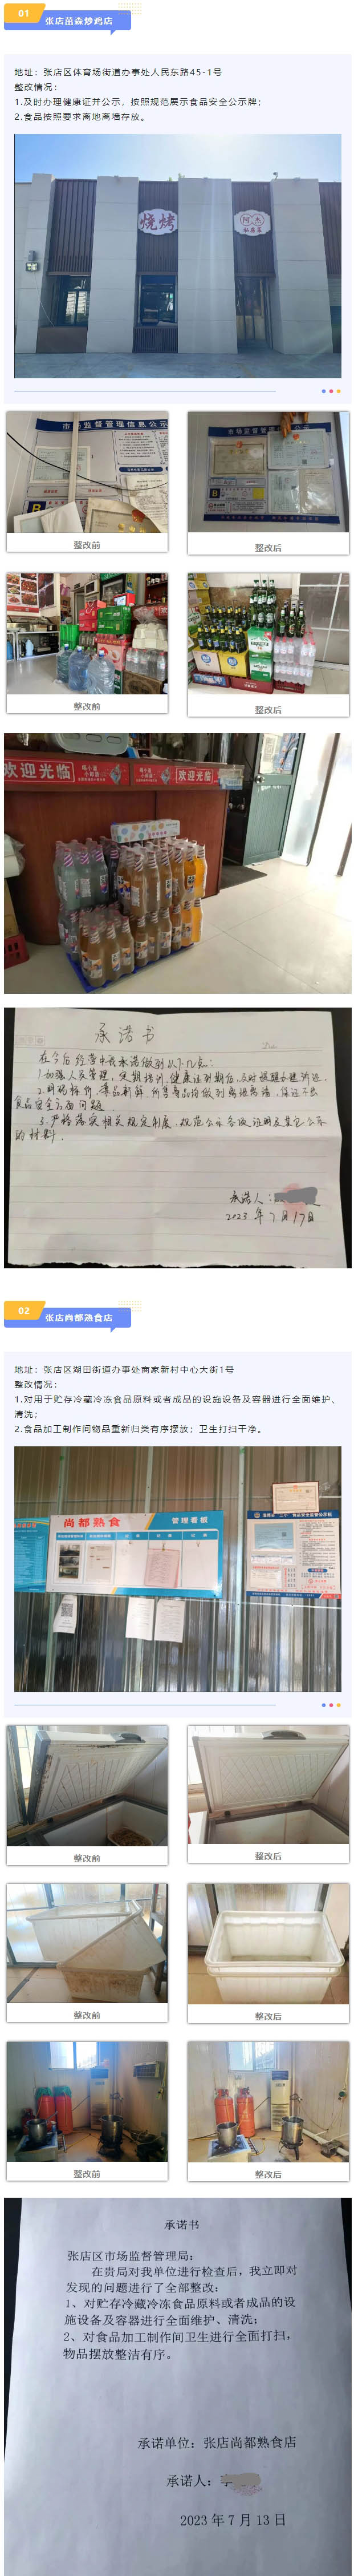 01
张店茁森炒鸡店
地址：张店区体育场街道办事处人民东路45-1号
整改情况：
1.及时办理健康证并公示，按照规范展示食品安全公示牌；
2.食品按照要求离地离墙存放。
烧烤
阿杰
私房菜
市场监督管理信息公示
B
B
整改前
整改后
整改前
整改后
欢迎光临
欢迎光临
承诺书
在今后经营中我承诺做到以下几点：
食品安全方面问题
3.严格落实相关规定制度，规范公示各级证明及其它公示
的材料.
承诺人：
2023年7月17日
02
张店尚都熟食店
地址：张店区湖田街道办事处商家新村中心大街1号
整改情况：
1.对用于贮存冷藏冷冻食品原料或者成品的设施设备及容器进行全面维护、
清洗；
2.食品加工制作间物品重新归类有序摆放；卫生打扫干净。
尚都熟食
管理看板
整改前
整改后
整改前
整改后
整改前
整改后
承诺书
张店区市场监督管理局：
在贵局对我单位进行检查后，我立即对
发现的问题进行了全部整改：
1、对贮存冷藏冷冻食品原料或者成品的设
施设备及容器进行全面维护、清洗；
2、对食品加工制作间卫生进行全面打扫，
物品摆放整洁有序。
承诺单位：张店尚都熟食店
承诺人：
2023年7月13日